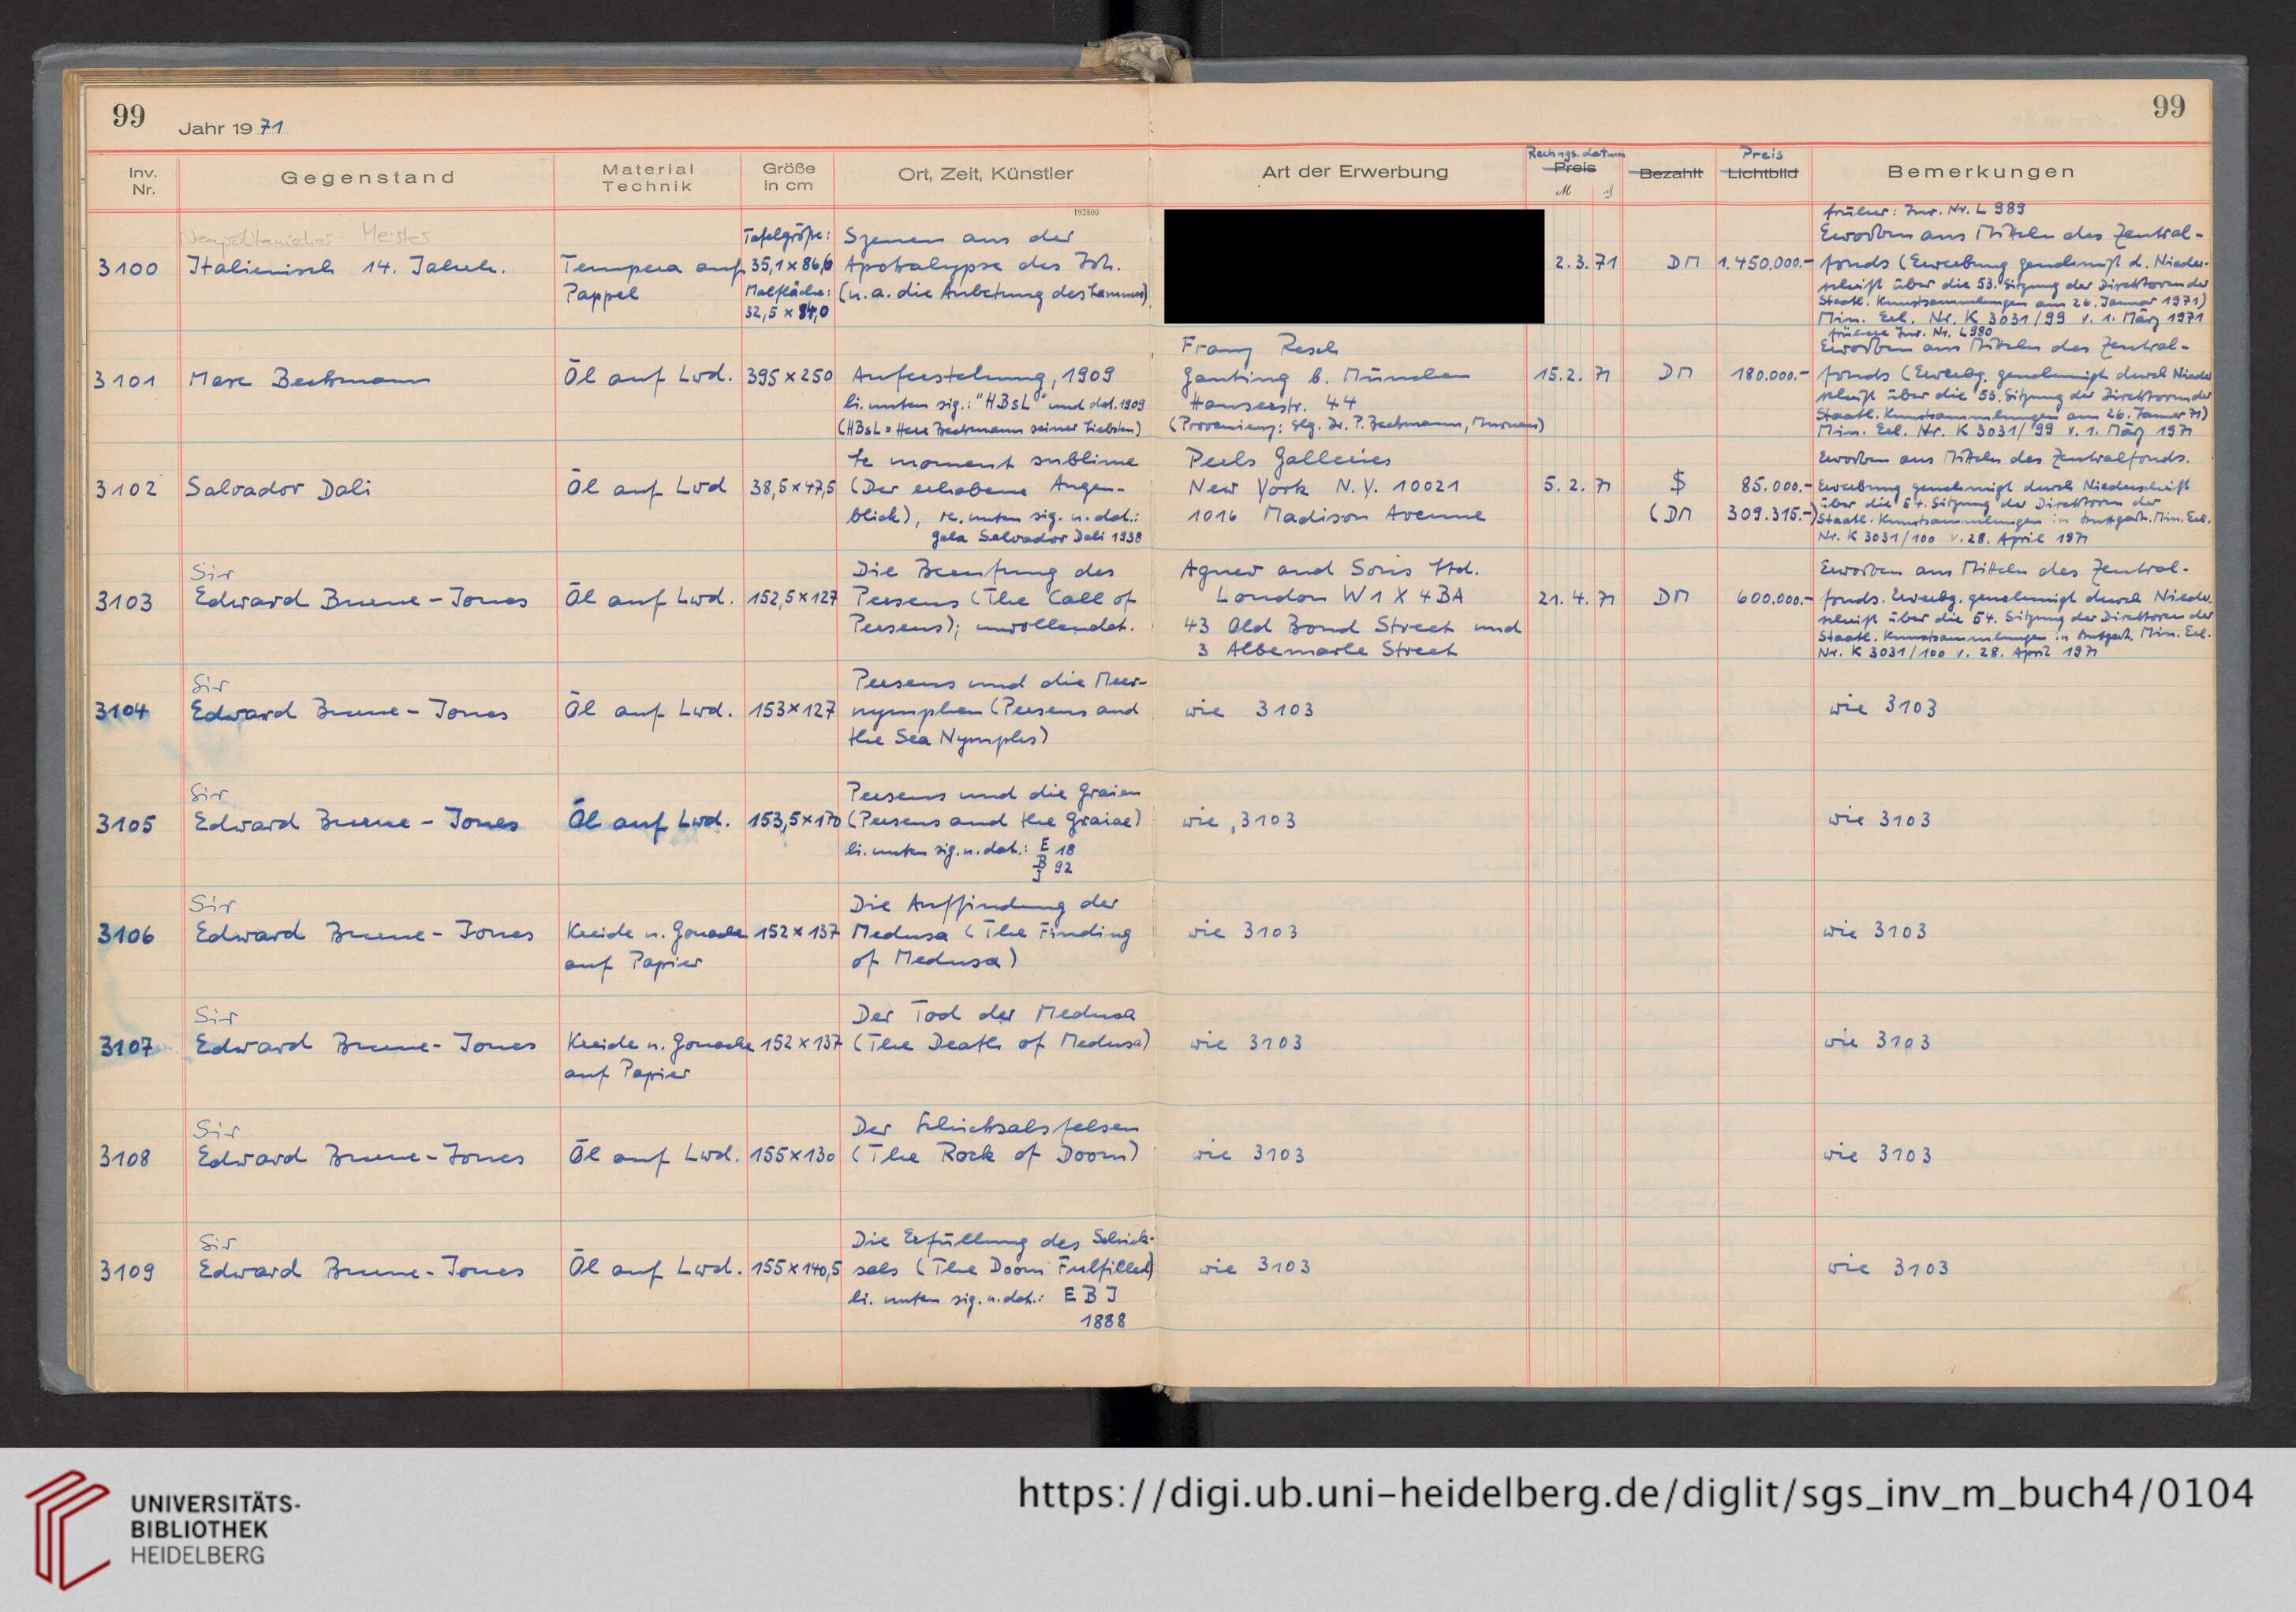 99
Jahr 1971
99
Inv. Nr.
Gegenstand
Material Technik
Größe in cm
Ort, Zeit, Künstler
Art der Erwerbung
Rechngs.datum
Preis
M
Bezahlt
Preis
Lichtbild
Bemerkungen
192800
Neapolitanischer Meister
3100 Italienisch 14. Jahrh.
Tempera auf
Pappel
Tafelgröße:
35,1 x 86,6
Malfläche:
32,5 x 84,0
Szenen aus der
Apokalypse des Joh.
(u. a. die Anbetung des Lammes)
2.3.71 DM 1.450.000.-
früher: Inv. Nr. L 989
Erworben aus Mitteln des Zentral-
fonds (Erwerbung genehmigt d. Nieder-
schrift über die 53. Sitzung der Direktoren der
Staatl. Kunstsammlungen am 26. Januar 1971)
Min. Erl. Nr. K 3031/99 v. 1. März 1971
3101 Max Beckmann
Öl auf Lwd.
395 x 250
Auferstehung, 1909
li. unten sig.: "HBSL" und dat. 1909
(HBSL = Herr Beckmann seiner Liebsten)
Franz Resch
Gauting b. München
Hauserstr. 44
(Provenienz: Slg. Dr. P. Beckmann, Murnau)
15.2.71 DM 180.000.-
frühere Inv. Nr. L 980
Erworben aus Mitteln des Zentral-
fonds (Erwerbg. genehmigt durch Nieder
schrift über die 53. Sitzung der Direktoren der
Staatl. Kunstsammlungen am 26. Januar 71)
Min. Erl. Nr. K 3031/99 v. 1. März 1971
3102 Salvador Dali
Öl auf Lwd
38,5 x 47,5
Le moment sublime
(Der erhabene Augen-
blick), re. unten sig. u. dat.:
Gala Salvador Dali 1938
Perls Galleries
New York N.Y. 10021
1016 Madison Avenue
5.2.71 $ 85.000.-
(DM 309.315.-)
Erworben aus Mitteln des Zentralfonds.
Erwerbung genehmigt durch Niederschrift
über die 54. Sitzung der Direktoren der
Staatl. Kunstsammlungen in Stuttgart. Min. Erl.
Nr. K 3031/100 v. 28. April 1971
Sir
3103 Edward Burne-Jones
Öl auf Lwd.
152,5 x 127
Die Berufung des
Perseus (The Call of
Perseus); unvollendet.
Agnew and Sons Ltd.
London W1X 4BA
43 Old Bond Street und
3 Albemarle Street
21.4.71 DM 600.000.-
Erworben aus Mitteln des Zentral-
fonds. Erwerbg. genehmigt durch Nieder-
schrift über die 54. Sitzung der Direktoren der
Staatl. Kunstsammlungen in Stuttgart, Min. Erl.
Nr. K 3031/100 v. 28. April 1971
Sir
3104 Edward Burne-Jones
Öl auf Lwd.
153 x 127
Perseus und die Meer-
nymphen (Perseus and
the Sea Nymphs)
wie 3103
wie 3103
Sir
3105 Edward Burne-Jones
Öl auf Lwd.
153,5 x 170
Perseus und die Graien
(Perseus and the Graiae)
li. unten sig. u. dat.: E 18
B 92
J
wie 3103
wie 3103
Sir
3106 Edward Burne-Jones
Kreide u. Gouache
auf Papier
152 x 137
Die Auffindung der
Medusa (The Finding
of Medusa)
wie 3103
wie 3103
Sir
3107 Edward Burne-Jones
Kreide u. Gouache
auf Papier
152 x 137
Der Tod der Medusa
(The Death of Medusa)
wie 3103
wie 3103
Sir
3108 Edward Burne-Jones
Öl auf Lwd.
155 x 130
Der Schicksalsfelsen
(The Rock of Doom)
wie 3103
wie 3103
Sir
3109 Edward Burne-Jones
Öl auf Lwd.
155 x 140,5
Die Erfüllung des Schick-
sals (The Doom Fulfilled)
li. unten sig. u. dat.: E B J
1888
wie 3103
wie 3103
UNIVERSITÄTS-
BIBLIOTHEK
HEIDELBERG
https://digi.ub.uni-heidelberg.de/diglit/sgs_inv_m_buch4/0104